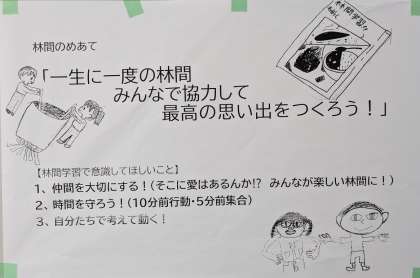 林間のめあて
林間学習のしおり
「一生に一度の林間
みんなで協力して
最高の思い出をつくろう！」
【林間学習で意識してほしいこと】
1、仲間を大切にする！（そこに愛はあるんか!? みんなが楽しい林間に！）
2、時間を守ろう！（10分前行動・5分前集合）
3、自分たちで考えて動く！